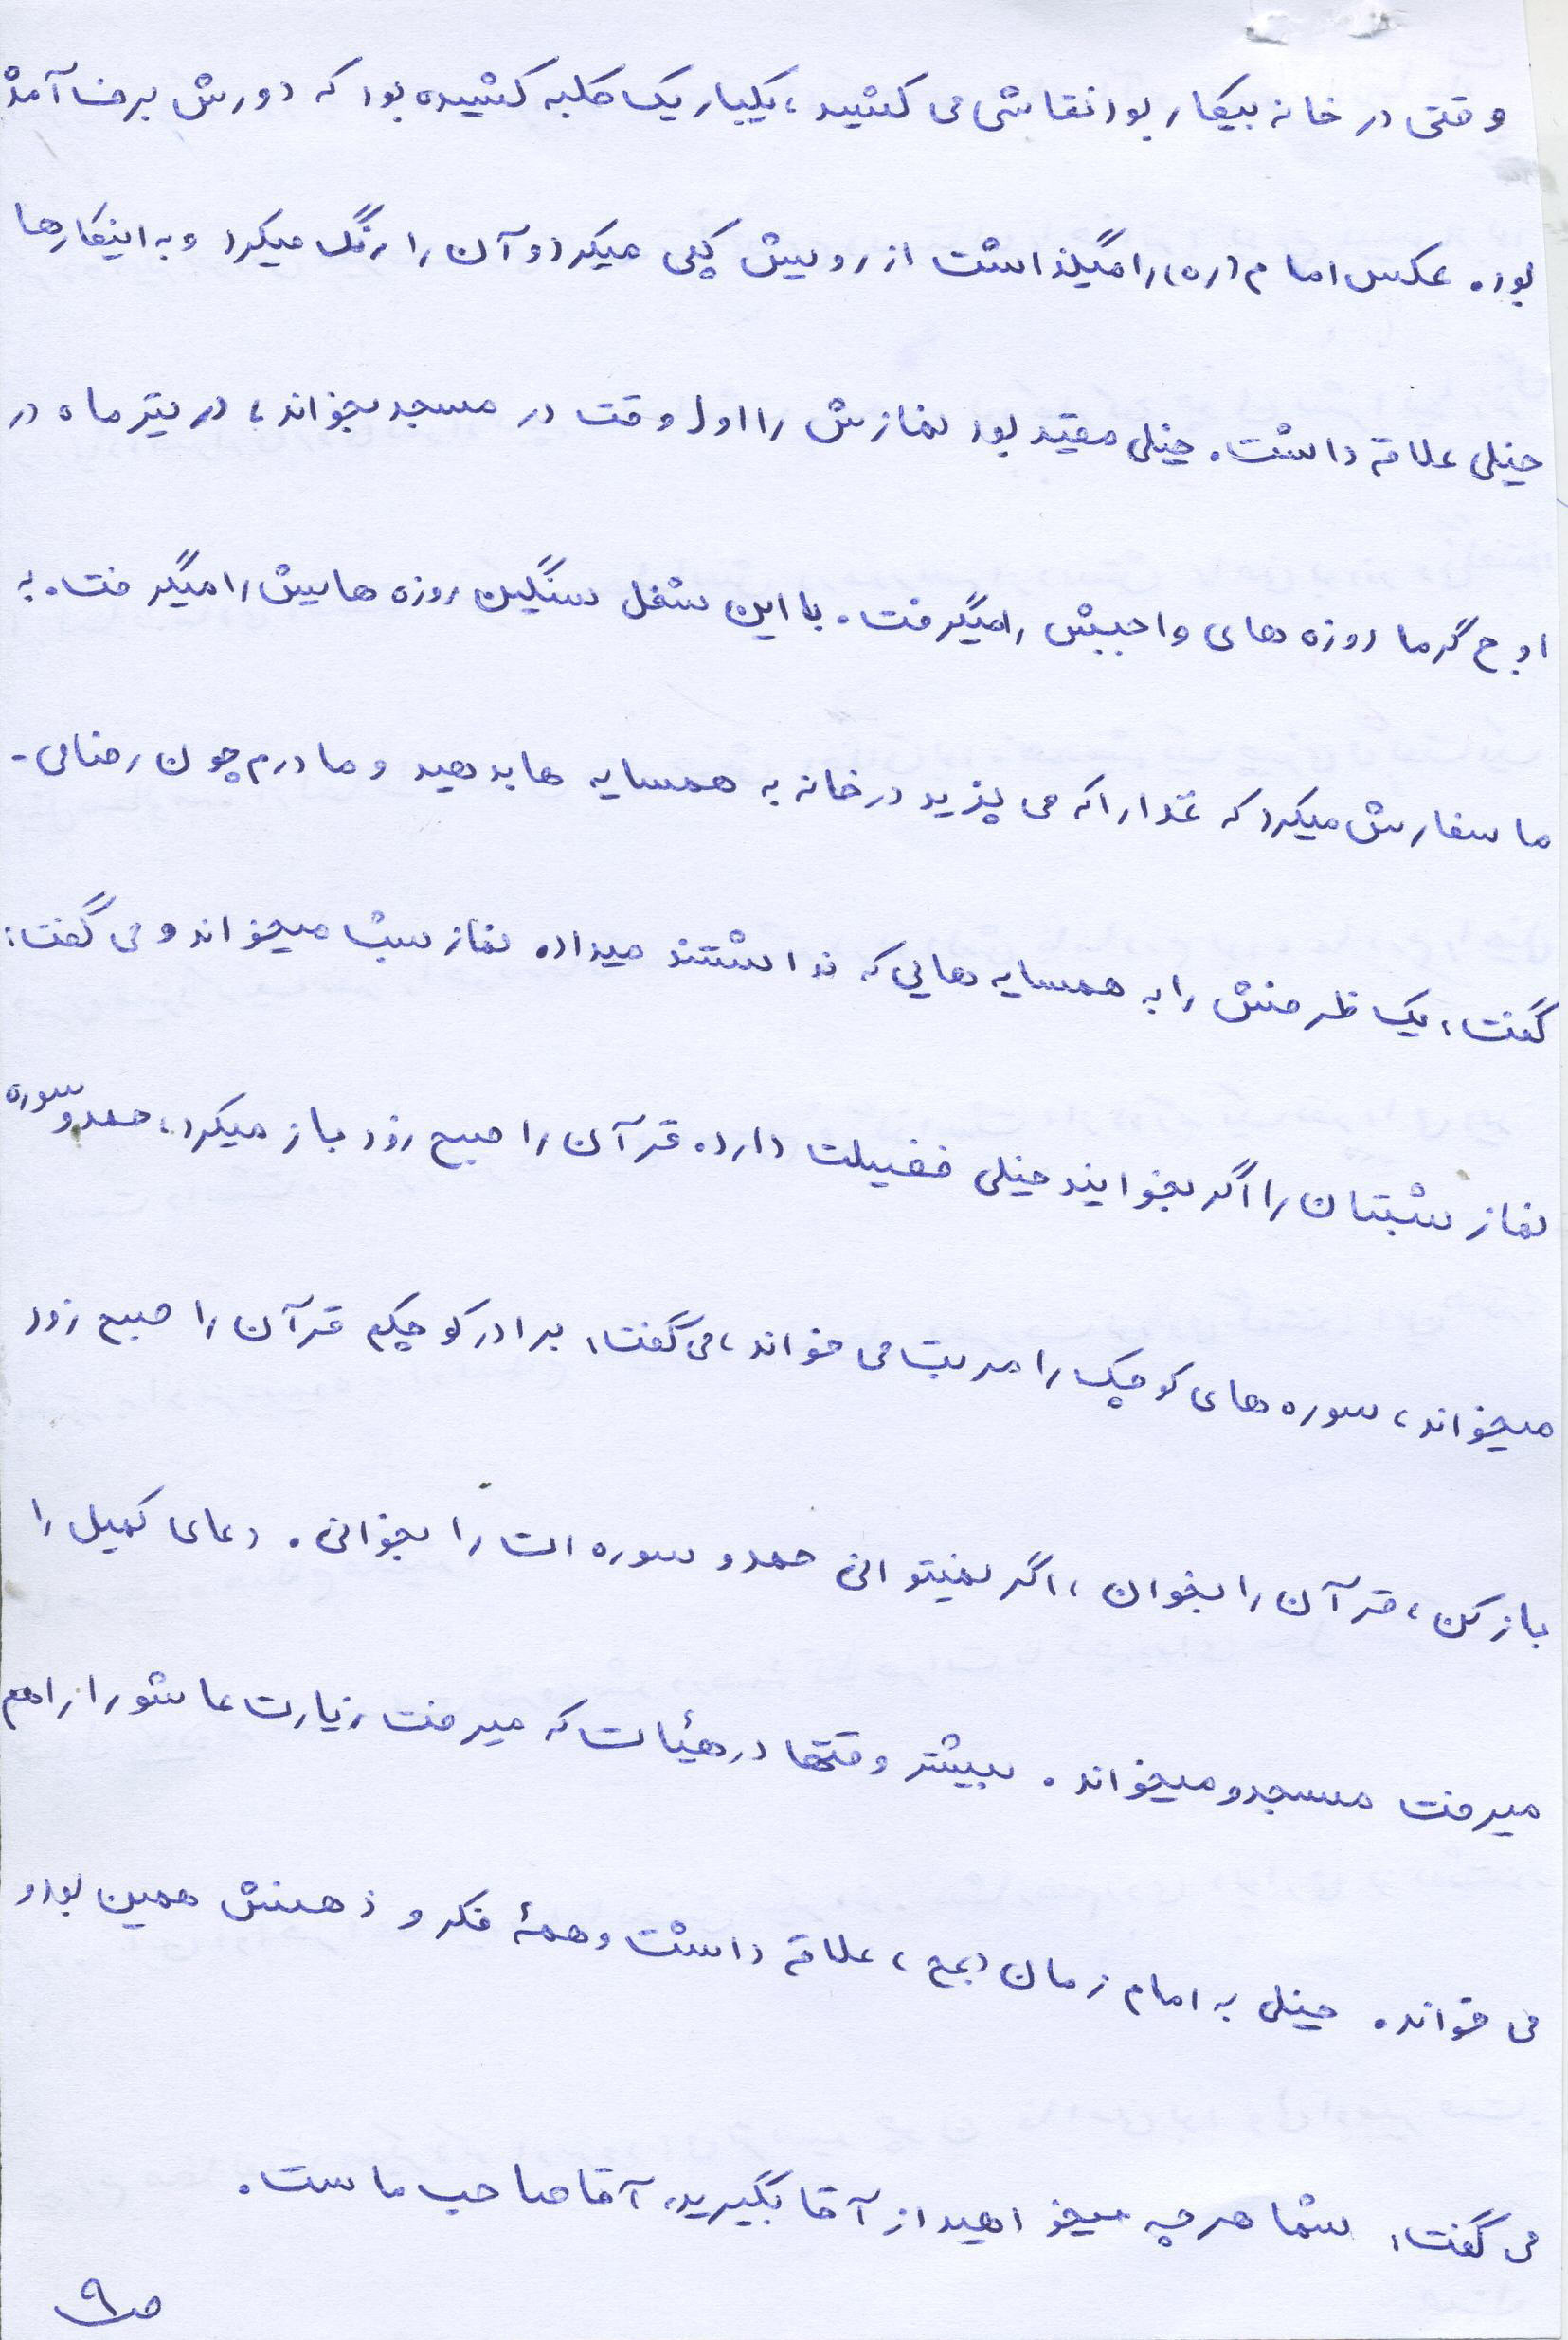 وقتی در خانه بیکار بود نقاشی می کشید، یکبار یک کلبه کشیده بود که دورش برف آمده
بود. عکس امام (ره) را میگذاشت از رویش کپی میکرد و آن را رنگ میکرد و به اینکارها
خیلی علاقه داشت. خیلی مقیّد بود نمازش را اول وقت در مسجد بخواند، در تیر ماه در
اوج گرما روزه های واجبش را میگرفت. با این شغل سنگین روزه هایش را میگرفت. به
ما سفارش میکرد که غذا را که می پزید در خانه به همسایه ها بدهید و مادرم چون رضا می-
گفت، یک ظرفش را به همسایه هایی که نداشتند میداد. نماز شب میخواند و می گفت:
نماز شبتان را اگر بخوانید خیلی فضیلت دارد. قرآن را صبح زود باز میکرد، حمد و سوره
میخواند، سوره های کوچک را مرتب می خواند، می گفت: برادر کوچکم قرآن را صبح زود
باز کن، قرآن را بخوان، اگر نمیتوانی حمد و سوره ات را بخوانی. دعای کمیل را
میرفت مسجد و میخواند. بیشتر وقتها در هیئات که میرفت زیارت عاشورا را هم
می خواند. خیلی به امام زمان (عج) علاقه داشت و همهٔ فکر و ذهنش همین بود و
می گفت: شما هر چه میخواهید از آقا بگیرید، آقا صاحب ماست.
ص۹